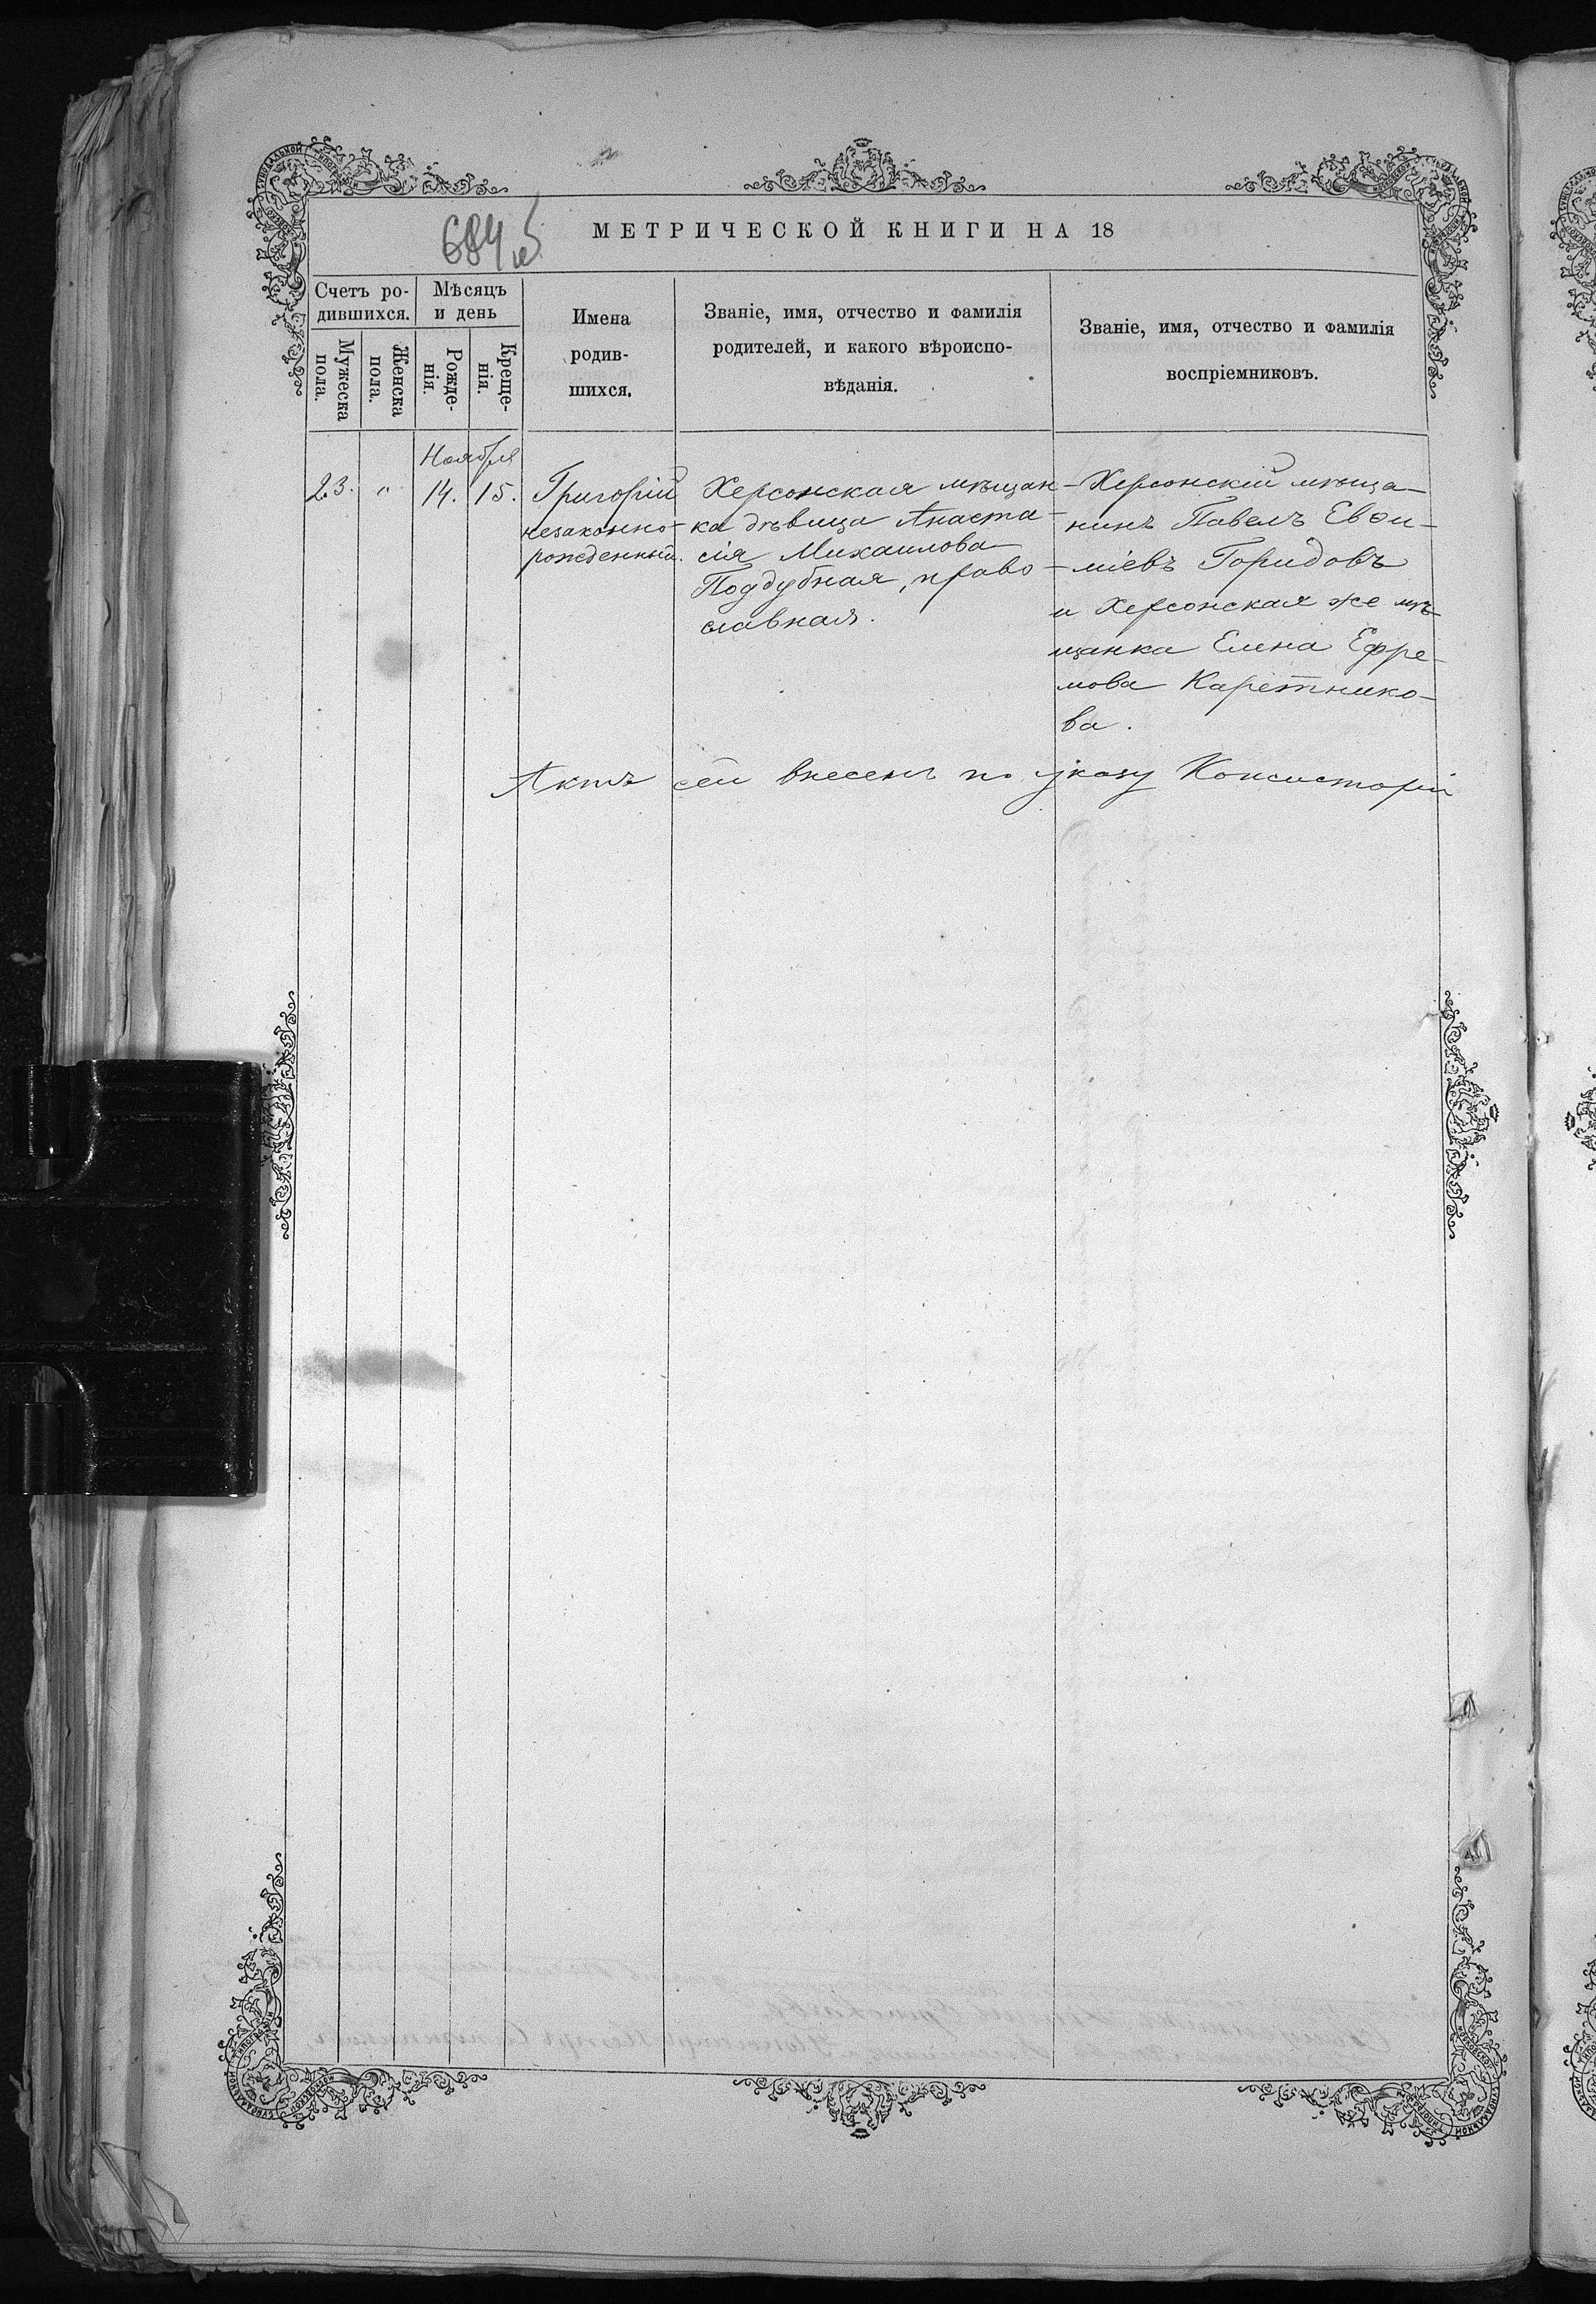 684 об
МЕТРИЧЕСКОЙ КНИГИ НА 18
Счетъ ро-
дившихся.
Мужеска
пола.
Женска
пола.
Мѣсяцъ
и день
Рожде-
нія.
Креще-
нія.
Имена
родив-
шихся.
Званіе, имя, отчество и фамилія
родителей, и какого вѣроиспо-
вѣданія.
Званіе, имя, отчество и фамилія
воспріемниковъ.
Ноября
23. " 14. 15.
Григорій
незаконно-
рожденный.
Херсонская мѣщан-
ка дѣвица Анаста-
сія Михаилова
Поддубная, право-
славная.
Херсонскій мѣща-
нинъ Павелъ Евѳи-
міевъ Горидовъ
и Херсонская же мѣ-
щанка Елена Ефре-
мова Каретнико-
ва.
Актъ сей внесенъ по указу Консисторіи